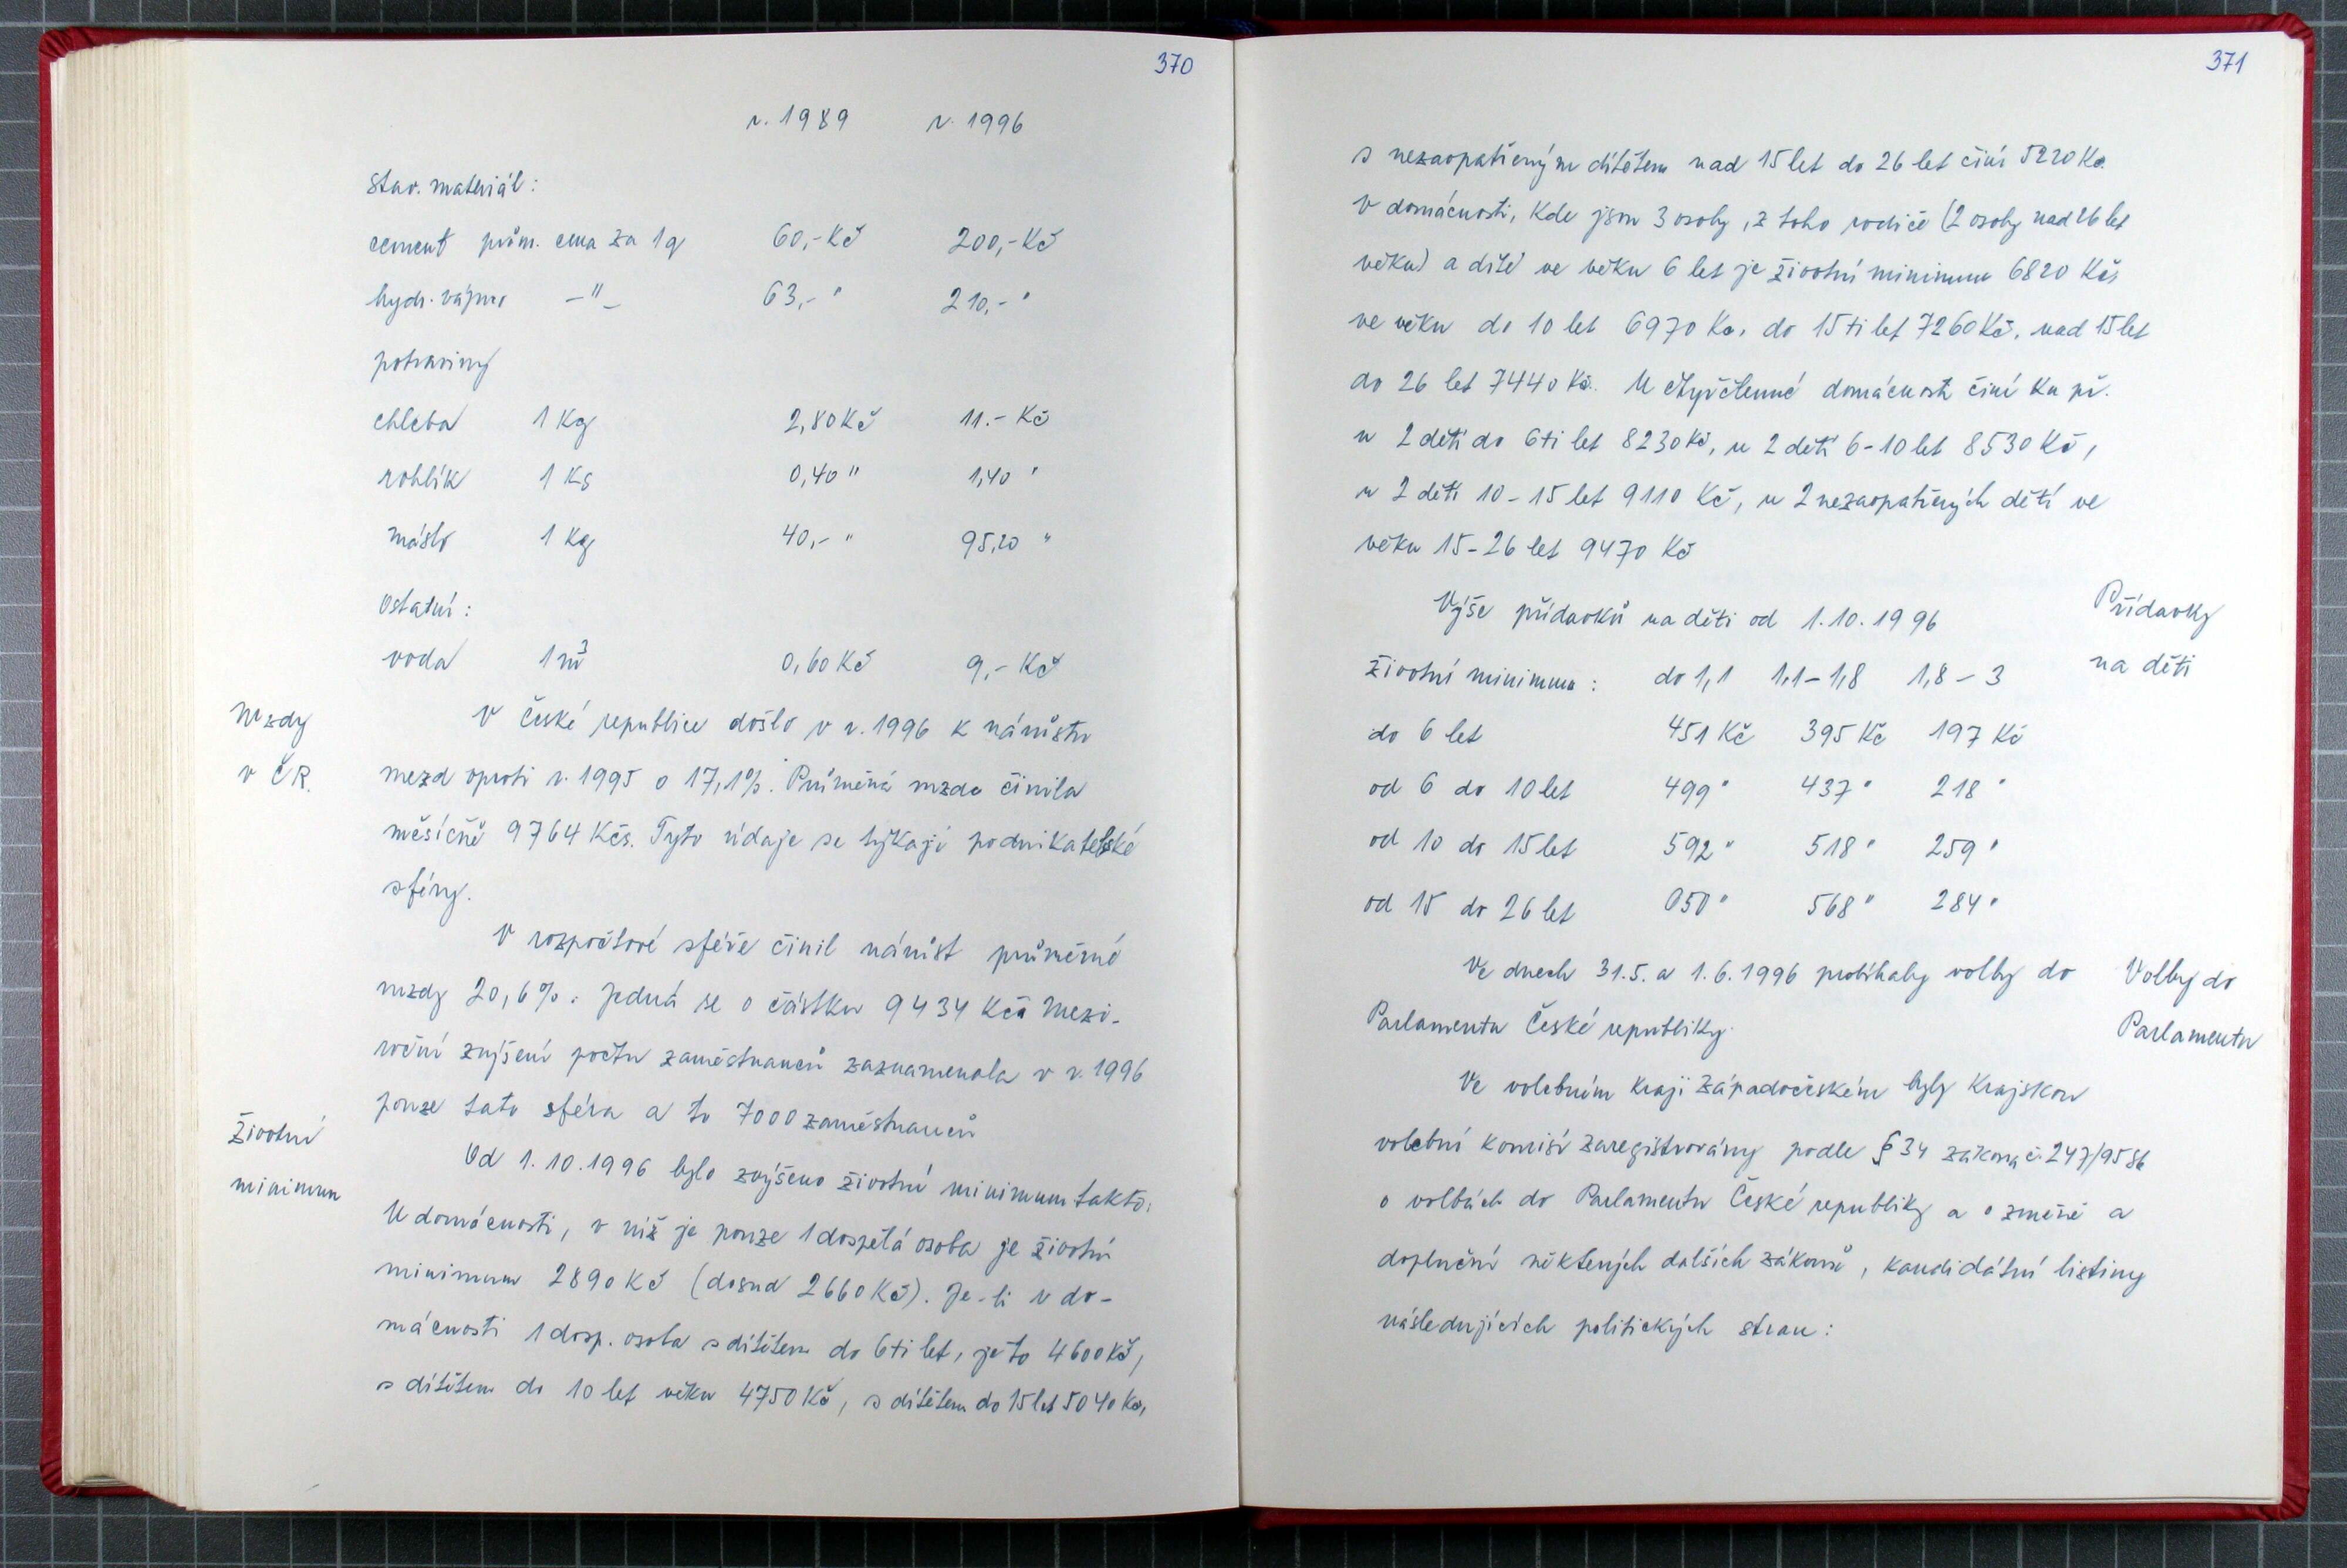 370
r. 1989 r. 1996
stav. materiál:
cement prům. cena za 1q 60,-Kč 200,-Kč
hydr. vápno -"- 63,- " 210,- "
potraviny
chleba 1 Kg 2,80 Kč 11.- Kč
rohlík 1 Ks 0,40 " 1,40 "
máslo 1 Kg 40,- " 95,20 "
Ostatní:
voda 1 m³ 0,60 Kč 9,- Kč
Mzdy
v ČR.
V České republice došlo v r. 1996 k nárůstu
mezd oproti r. 1995 o 17,1%. Průměrná mzda činila
měsíčně 9764 Kčs. Tyto údaje se týkají podnikatelské
sféry.
V rozpočtové sféře činil nárůst průměrné
mzdy 20,6%. Jedná se o částku 9434 Kčs Mezi-
roční zvýšení počtu zaměstnanců zaznamenala v r. 1996
pouze tato sféra a to 7000 zaměstnanců
Životní
minimum
Od 1.10.1996 bylo zvýšeno životní minimum takto:
U domácnosti, v níž je pouze 1 dospělá osoba je životní
minimum 2890 Kč (dosud 2660 Kč). Je-li v do-
mácnosti 1 dosp. osoba s dítětem do 6ti let, je to 4600 Kč,
s dítětem do 10 let věku 4750 Kč, s dítětem do 15 let 5040 Kč,
371
s nezaopatřeným dítětem nad 15 let do 26 let činí 5220 Kč.
V domácnosti, kde jsou 3 osoby, z toho rodiče (2 osoby nad 26 let
věku) a dítě ve věku 6 let je životní minimum 6820 Kč,
ve věku do 10 let 6970 Kč, do 15ti let 7260 Kč, nad 15 let
do 26 let 7440 Kč. U čtyřčlenné domácnosti činí ku př.
u 2 dětí do 6ti let 8230 Kč, u 2 dětí 6-10 let 8530 Kč,
u 2 dětí 10-15 let 9110 Kč, u 2 nezaopatřených dětí ve
věku 15-26 let 9470 Kč
Přídavky
na děti
Výše přídavků na děti od 1.10.1996
životní minimum: do 1,1 1,1-1,8 1,8-3
do 6 let 451 Kč 395 Kč 197 Kč
od 6 do 10 let 499 " 437 " 218 "
od 10 do 15 let 592 " 518 " 259 "
od 15 do 26 let 650 " 568 " 284 "
Volby do
Parlamentu
Ve dnech 31.5. a 1.6.1996 probíhaly volby do
Parlamentu České republiky.
Ve volebním kraji Západočeském byly Krajskou
volební komisí zaregistrovány podle § 34 zákona č. 247/95 Sb
o volbách do Parlamentu České republiky a o změně a
doplnění některých dalších zákonů, kandidátní listiny
následujících politických stran: